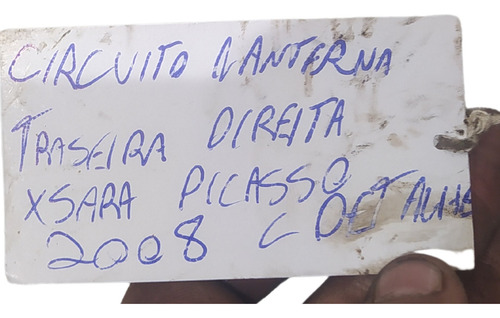 CIRCUITO LANTERNA
TRASEIRA DIREITA
XSARA PICASSO
2008 C/ DETALHE